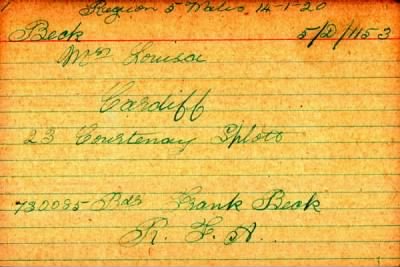 Region 5 Wales. 14-1-20
Beck 5/D/1153
Mrs Louisa
Cardiff
23 Courtenay Splott
730085 Bdr Frank Beck
R. F. A.